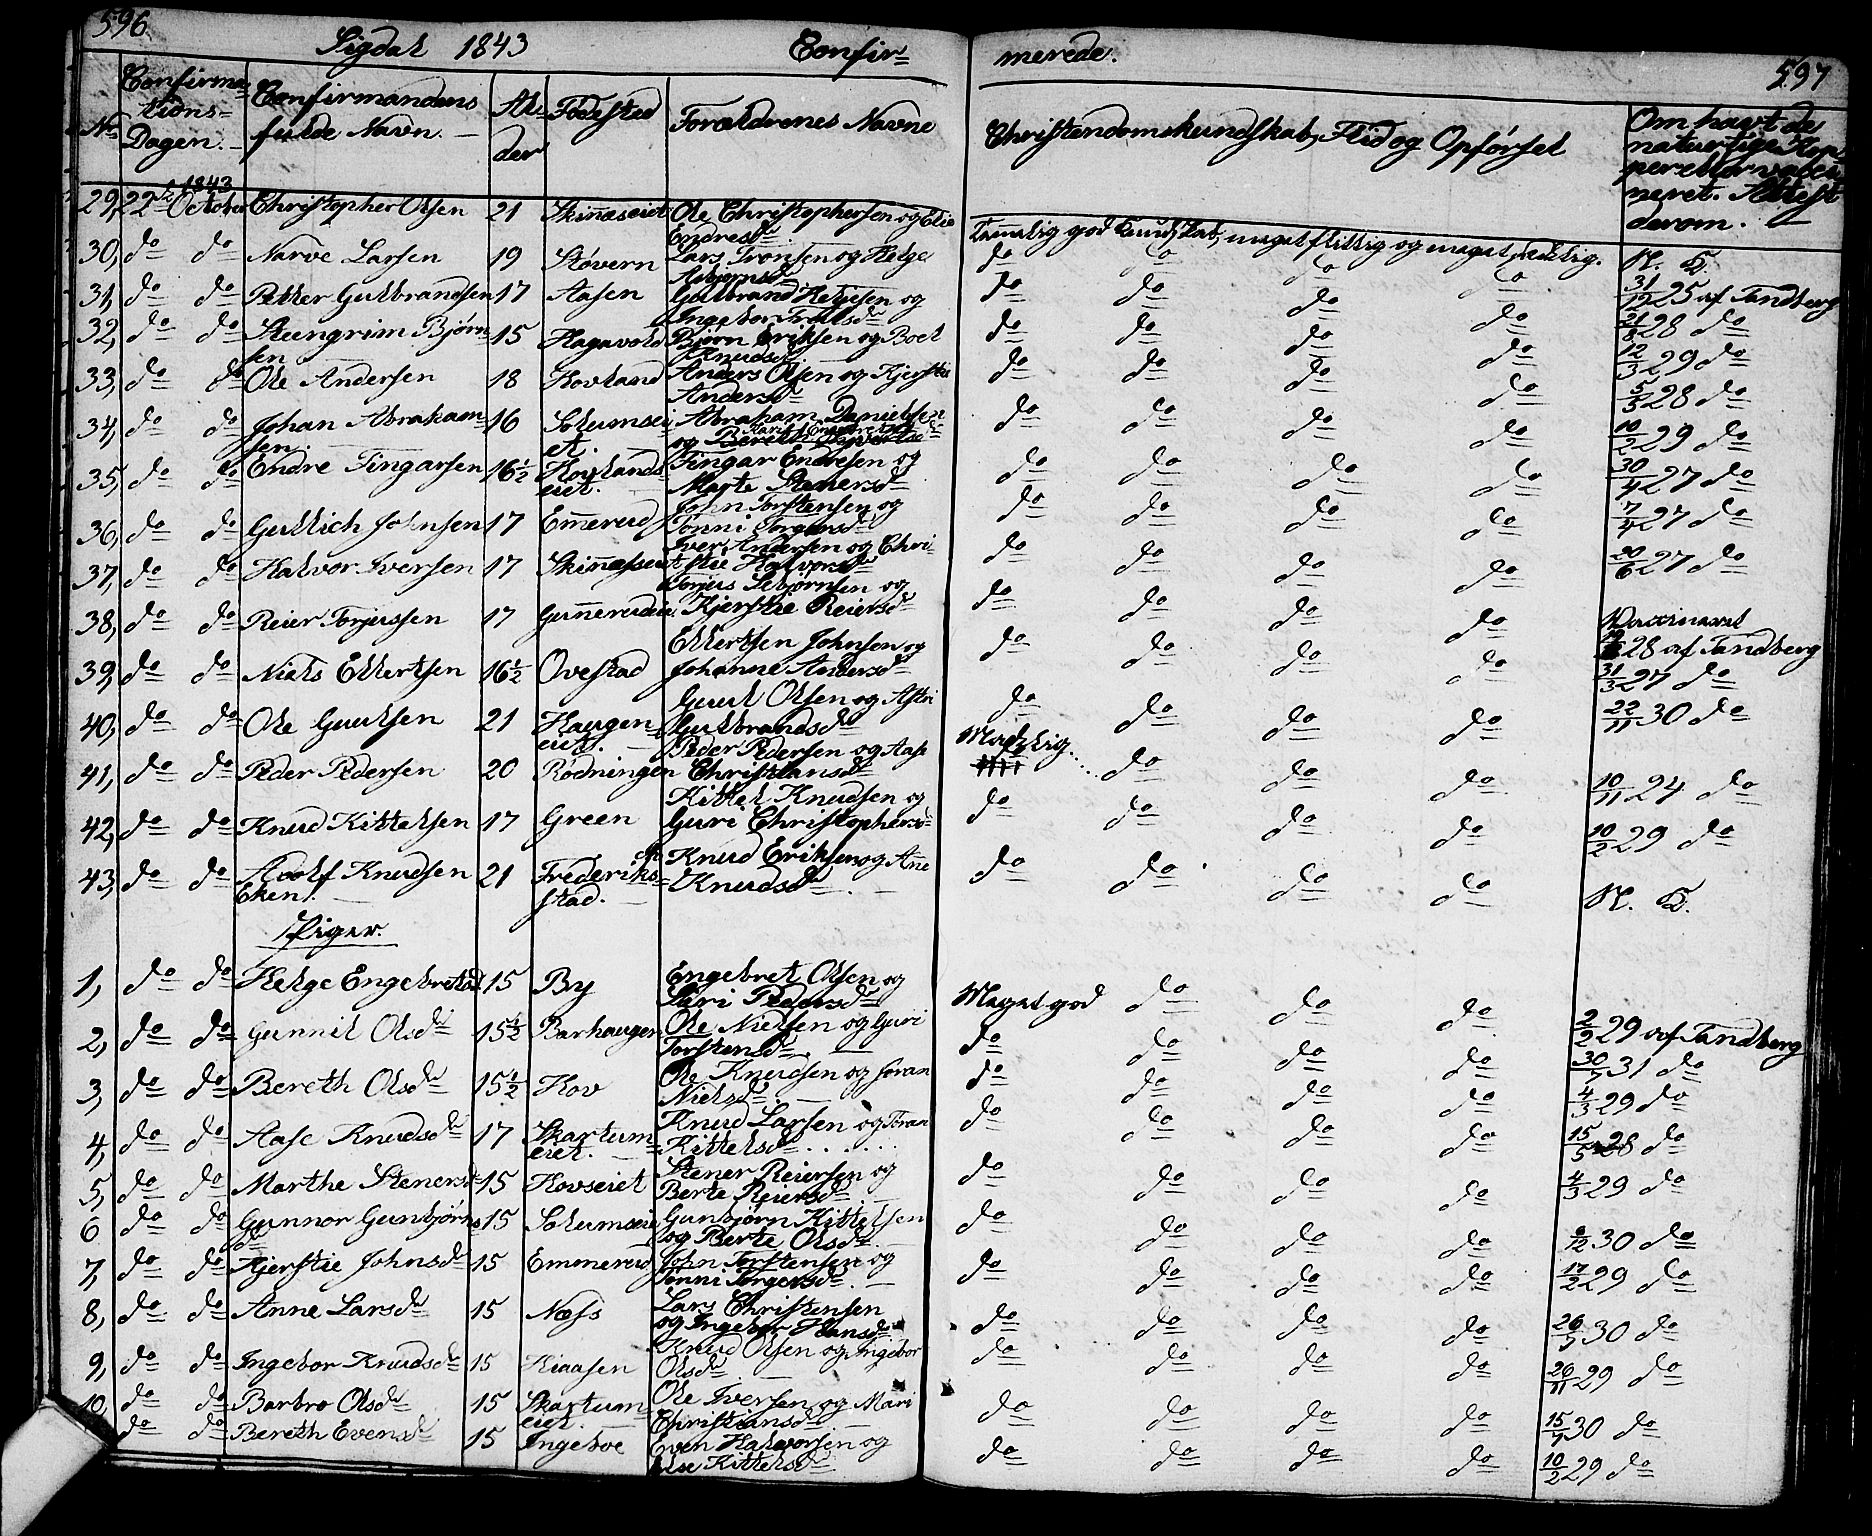 596
Sigdal 1843 Confir=
merede.
597
No Confirma= tions= Dagen. Confirmandens fulde Navn. Al= der Fødested Forældrenes Navne Christendomskundskab, Flid og Opførsel Om havt de naturlige Kop= per eller vacci= neret. Attest derom.
1843
29, 22de October Christopher Olsen 21 Skinæseiet Ole Christophersen og Elie Endresdr Temelig god Kundskab, meget flittig og meget sædelig. N. B.
30, do do Narve Larsen 19 Støvern Lars Tronsen og Helge Asbjørnsdr do do do do 31/12 25 af Tandberg
31, do do Petter Gulbrandsen 17 Aasen Gulbrand Helgesen og Ingebor Troelsdr do do do do 21/8 28 do
32, do do Steengrim Bjørn= sen 15 Hagavold Bjørn Eriksen og Boel Knudsdr do do do do 12/3 29 do
33, do do Ole Andersen 18 Hovland Anders Olsen og Kjerstie Andersdr do do do do 5/5 28 do
34, do do Johan Abraham= sen 16 Solumsei= et. Abraham Danielsen og do do do do 10/2 29 do
35, do do Endre Tingarsen 16½ Hovlands eiet. Tingar Endresen og Marte Stenersdr do do do do 30/4 27 do
36, do do Gullich Johnsen 17 Emerud John Torstensen og Tonni Torgersdr do do do do 7/4 27 do
37, do do Halvor Iversen 17 Skinæseiet Iver Andersen og Chri= stie Halvorsdr do do do do 20/6 27 do
38, do do Reier Torjussen 17 Gunerudei. Torjus Sebjørnsen og Kjerstie Reiersdr do do do do Vaccineret
39, do do Niels Ellertsen 16½ Ovestad Ellertsen Johnsen og Johanne Andersdr do do do do 28 af Tandberg
31/3 27 do
40, do do Ole Guulsen 21 Haugen= eiet. Guul Olsen og Astri Gulbrandsdr do do do do 22/11 30 do
41, do do Peder Pedersen 20 Rødningen Peder Pedersen og Aase Christiansdr Maadelig do do do 10/11 24 do
42, do do Knud Kittelsen 17 Green Kittel Knudsen og Guri Christophersdr do do do do 10/2 29 do
43, do do Adolf Knudsen Eken. 21 Frederiks= stad. Knud Eriksen og Ane Knudsdr do do do do N. B.
Piger.
1, do do Helge Engebretsd 15 By Engebret Olsen og Siri Pedersdr Meget god do do do 2/2 29 af Tandberg
2, do do Gunnil Olsdr 15½ Barhaugen Ole Nielsen og Guri Torstensdr do do do do 30/7 31 do
3, do do Bereth Olsdr 15½ Hov Ole Knudsen og Joran Nielsdr do do do do 4/3 29 do
4, do do Aase Knudsdr 17 Skartum= eiet. Knud Larsen og Joran Kittelsdr do do do do 15/5 28 do
5, do do Marthe Stenersdr 15 Hovseiet Stener Reiersen og Berte Reiersdr do do do do 4/3 29 do
6 do do Gunnor Gunbjørns dr 15 Solumseie Gunbjørn Kittelsen og Berte Olsdr do do do do 9/12 30 do
7, do do Kjerstie Johnsdr 15 Emmerud John Torstensen og Tonni Torgersdr do do do do 17/2 29 do
8, do do Anne Larsdr 15 Næss Lars Christensen og Ingebor Hansdr do do do do 26/5 30 do
9, do do Ingebor Knudsdr 15 Kiaasen Knud Olsen og Ingebor Olsdr do do do do 26/11 29 do
10, do do Barbro Olsdr 15 Skartum= eiet. Ole Iversen og Mari Christiansdr do do do do 15/7 30 do
do do Bereth Evensdr 15 Ingeboe Even Halvorsen og Else Kittelsdr do do do do 10/2 29 do